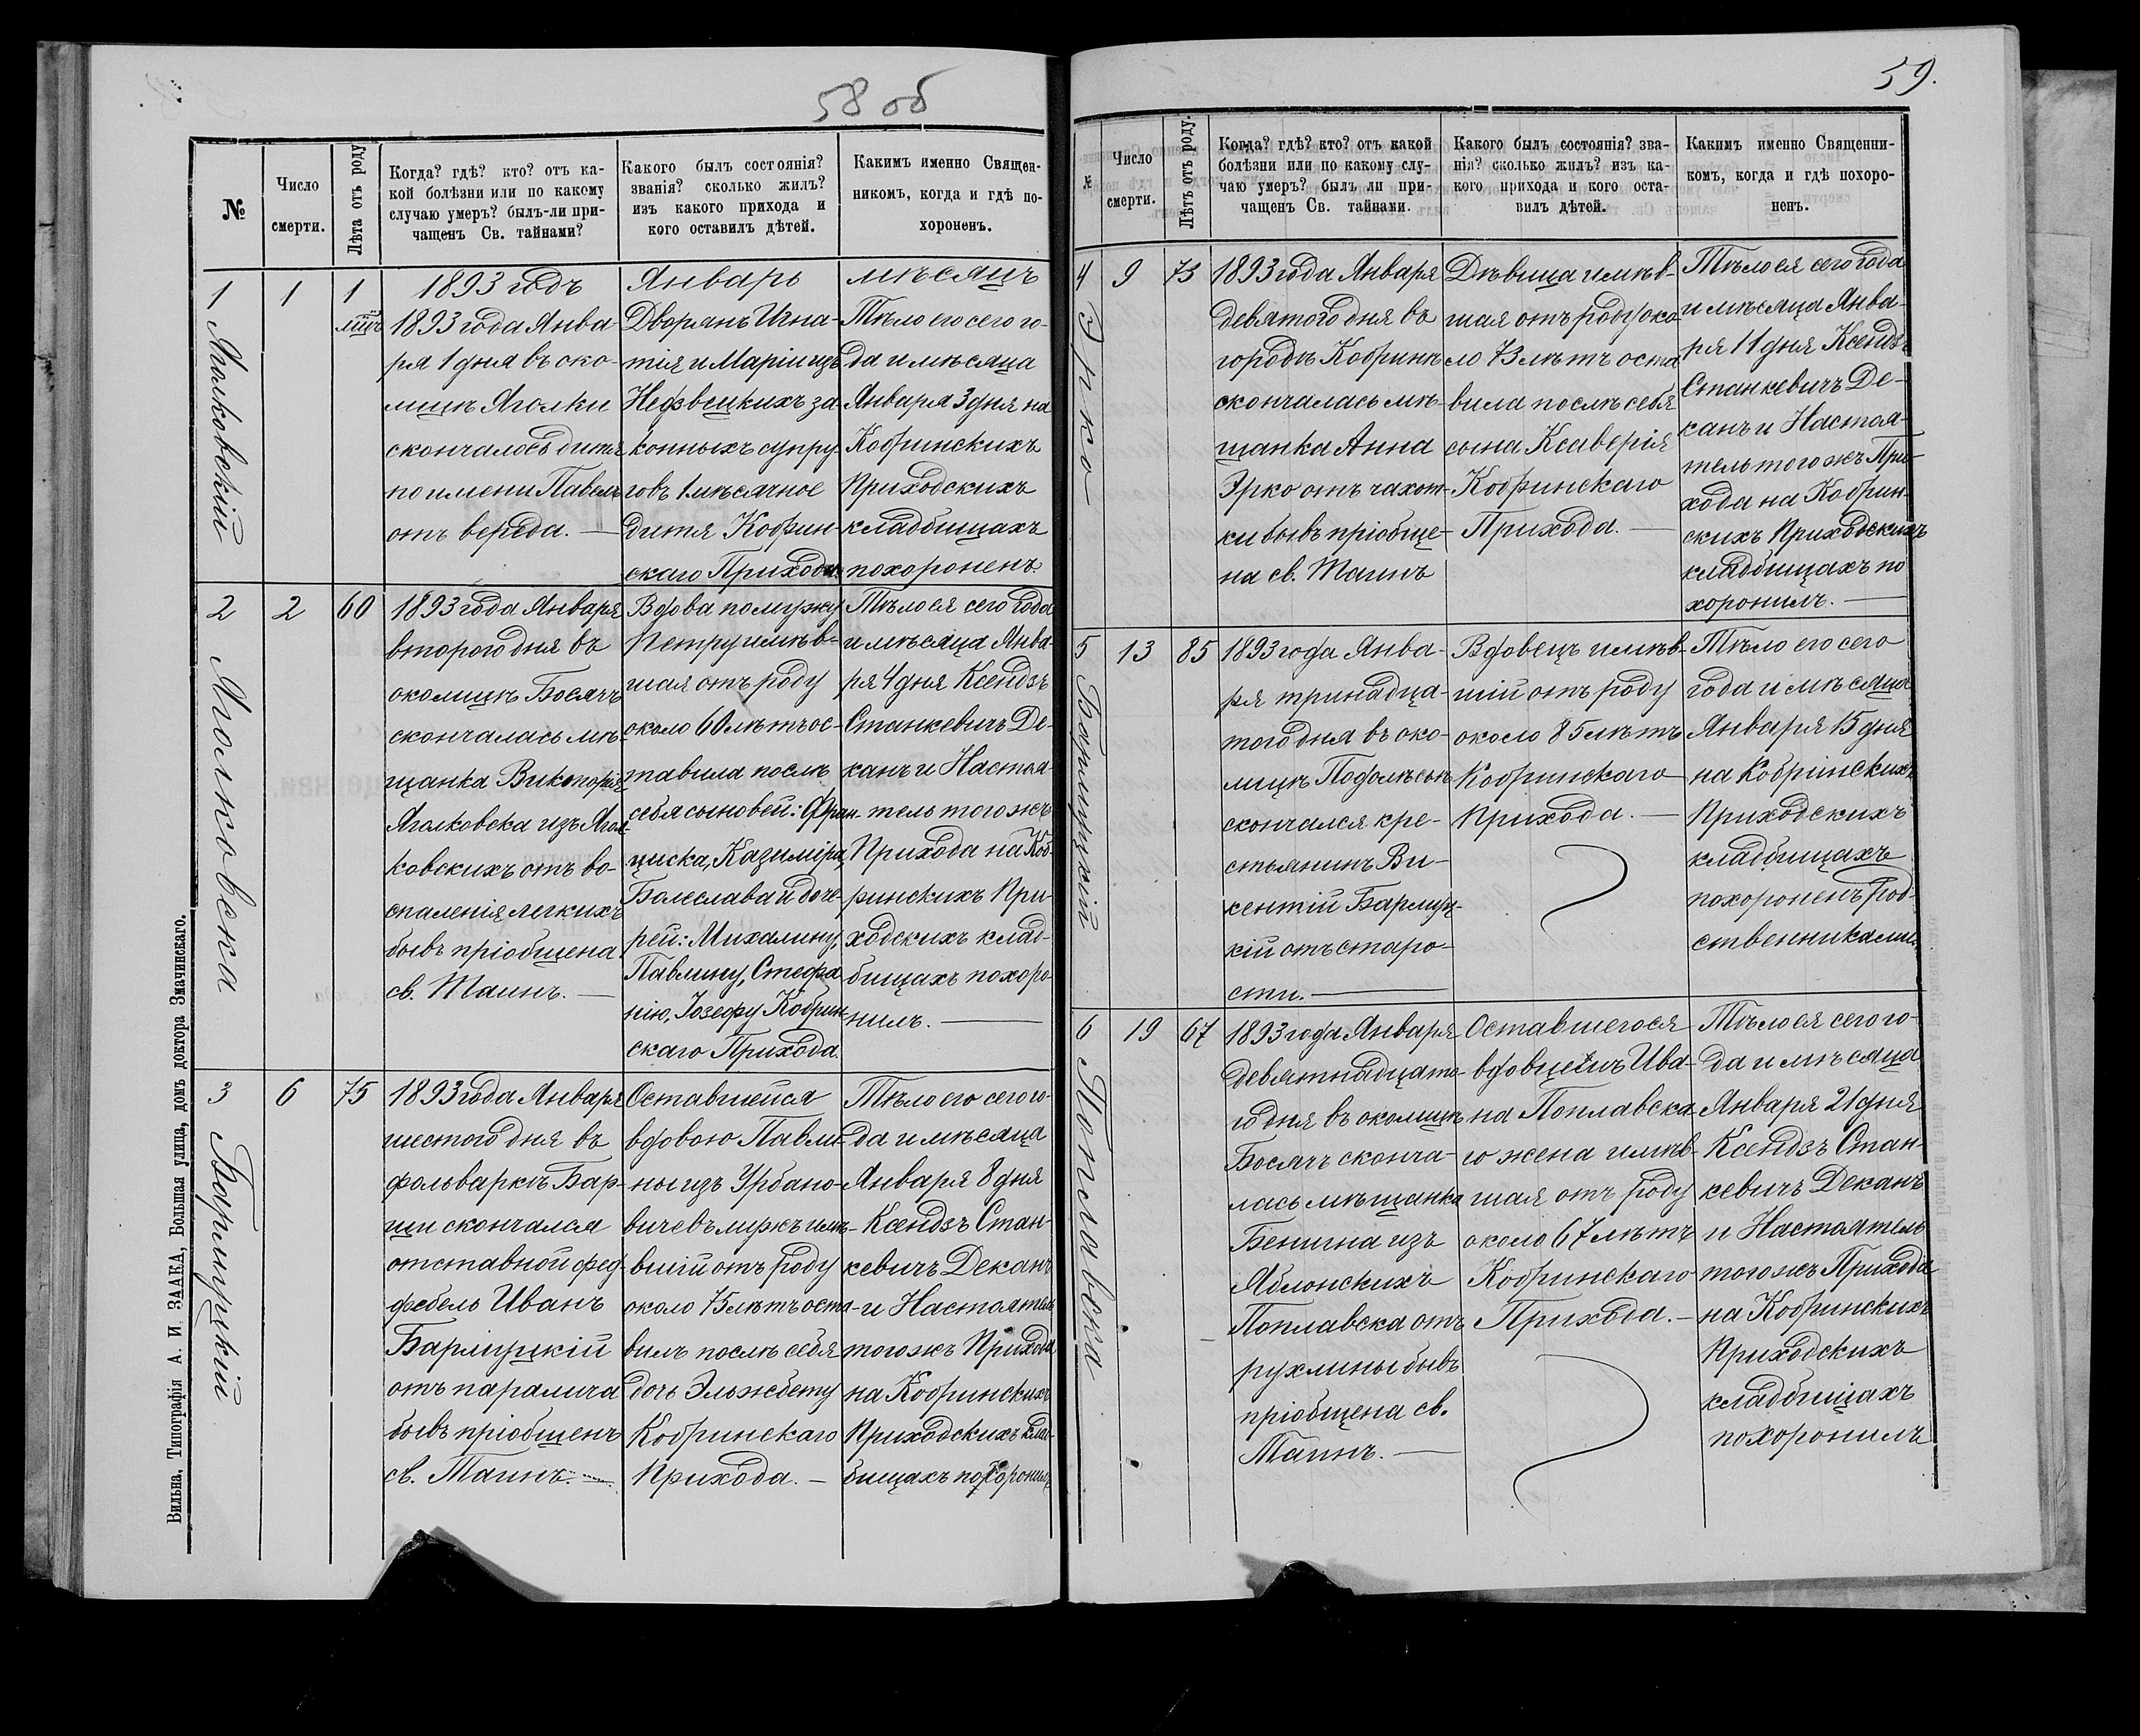 58 об
№
Число
смерти.
Лѣта отъ роду
Когда? гдѣ? кто? отъ ка-
кой болѣзни или по какому
случаю умеръ? былъ-ли при-
чащенъ Св. тайнами?
Какого былъ состоянія?
званія? сколько жилъ?
изъ какого прихода и
кого оставилъ дѣтей.
Какимъ именно Священ-
никомъ, когда и гдѣ по-
хороненъ.
1
1
1
1893 годъ
Январь
мѣсяцъ
1893 года Янва-
ря 1 дня въ око-
лицѣ Яголки
скончалось дитя
по имени Павелъ
отъ вереда. —
Дворянъ Игна-
тія и Маріи изъ
законныхъ супру-
говъ 1 мѣсячное
дитя Кобрин-
скаго Прихода.
Тѣло его сего го-
да и мѣсяца
Января 3 дня на
Кобринскихъ
Приходскихъ
кладбищахъ
похороненъ.
2
Яголковска
2
60
1893 года Января
второго дня въ
околицѣ Босячъ
скончалась мѣ-
щанка Викторія
Яголковска изъ Ягол-
ковскихъ отъ во-
спаленія легкихъ
бывъ пріобщена
св. Таинъ. —
Вдова по мужу
Петру имѣв-
шая отъ роду
около 60 лѣтъ ос-
тавила послѣ
себя сыновей: Фран-
циска, Казиміра,
Болеслава и доче-
рей: Михалину,
Павлину, Стефа-
нію, Іозефу Кобрин-
скаго Прихода.
Тѣло ея сего года
и мѣсяца Янва-
ря 4 дня Ксендзъ
Станкевичъ Де-
канъ и Настоя-
тель того жъ
Прихода на Коб-
ринскихъ При-
ходскихъ клад-
бищахъ похоро-
нилъ. —
3
Барлицкій
6
75
1893 года Января
шестого дня въ
фольваркѣ Бар-
щи скончался
отставной фед-
фебель Иванъ
Барлицкій
отъ паралича
бывъ пріобщенъ
св. Таинъ. —
Оставшейся
вдовою Павли-
ны изъ Урбано-
вичевъ мужъ имѣ-
вшій отъ роду
около 75 лѣтъ оста-
вилъ послѣ себя
дочь Эльжбету
Кобринскаго
Прихода. —
Тѣло его сего го-
да и мѣсяца
Января 8 дня
Ксендзъ Стан-
кевичъ Деканъ
и Настоятель
того жъ Прихода
на Кобринскихъ
Приходскихъ клад-
бищахъ похоронилъ
Вильна. Типографія А. И. ЗААКА, Большая улица, домъ доктора Змачинскаго.
59.
№
Число
смерти.
Лѣтъ отъ роду.
Когда? гдѣ? кто? отъ какой
болѣзни или по какому слу-
чаю умеръ? былъ ли при-
чащенъ Св. тайнами.
Какого былъ состоянія? зва-
нія? сколько жилъ? изъ ка-
кого прихода и кого оста-
вилъ дѣтей.
Какимъ именно Священни-
комъ, когда и гдѣ похоро-
ненъ.
4
Эрко
9
73
1893 года Января
девятого дня въ
городѣ Кобринѣ
скончалась мѣ-
щанка Анна
Эрко отъ чахот-
ки бывъ пріобще-
на св. Таинъ
Дѣвица имѣв-
шая отъ роду око-
ло 73 лѣтъ оста
вила послѣ себя
сына Ксаверія
Кобринскаго
Прихода. —
Тѣло ея сего года
и мѣсяца Янва-
ря 11 дня Ксендзъ
Станкевичъ Де-
канъ и Настоя-
тель того жъ При-
хода на Кобрин-
скихъ Приходскихъ
кладбищахъ по
хоронилъ. —
5
Барлицкій
13
85
1893 года Янва-
ря тринадца-
того дня въ око-
лицѣ Подлѣсье
скончался кре-
стьянинъ Ви-
кентій Барлиц-
кій отъ старо-
сти. —
Вдовецъ имѣв-
шій отъ роду
около 85 лѣтъ
Кобринскаго
Прихода. —
Тѣло его сего
года и мѣсяца
Января 15 дня
на Кобринскихъ
Приходскихъ
кладбищахъ
похороненъ род-
ственниками.
6
Поплавска
19
67
1893 года Января
девятнадцато-
го дня въ околицѣ
Босячъ сконча-
лась мѣщанка
Бенигна изъ
Яблонскихъ
Поплавска отъ
рухлины бывъ
пріобщена св.
Таинъ. —
Оставшегося
вдовцемъ Ива-
на Поплавска-
го жена имѣв-
шая отъ роду
около 67 лѣтъ
Кобринскаго
Прихода. —
Тѣло ея сего го-
да и мѣсяца
Января 21 дня
Ксендзъ Стан-
кевичъ Деканъ
и Настоятель
того жъ Прихода
на Кобринскихъ
Приходскихъ
кладбищахъ
похоронилъ